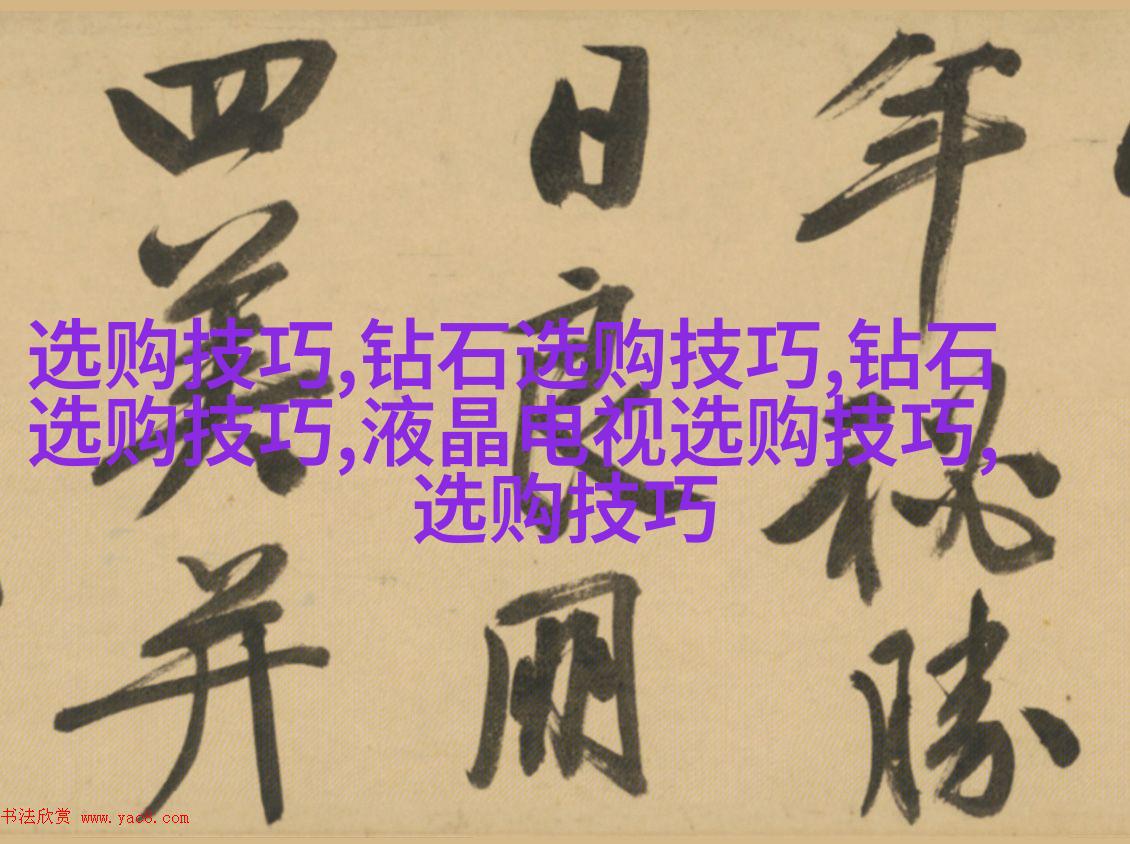 年秘勝
日良朋
四美并
选购技巧,钻石选购技巧,钻石
选购技巧,液晶电视选购技巧,
选购技巧
书法欣赏 www.yac8.com